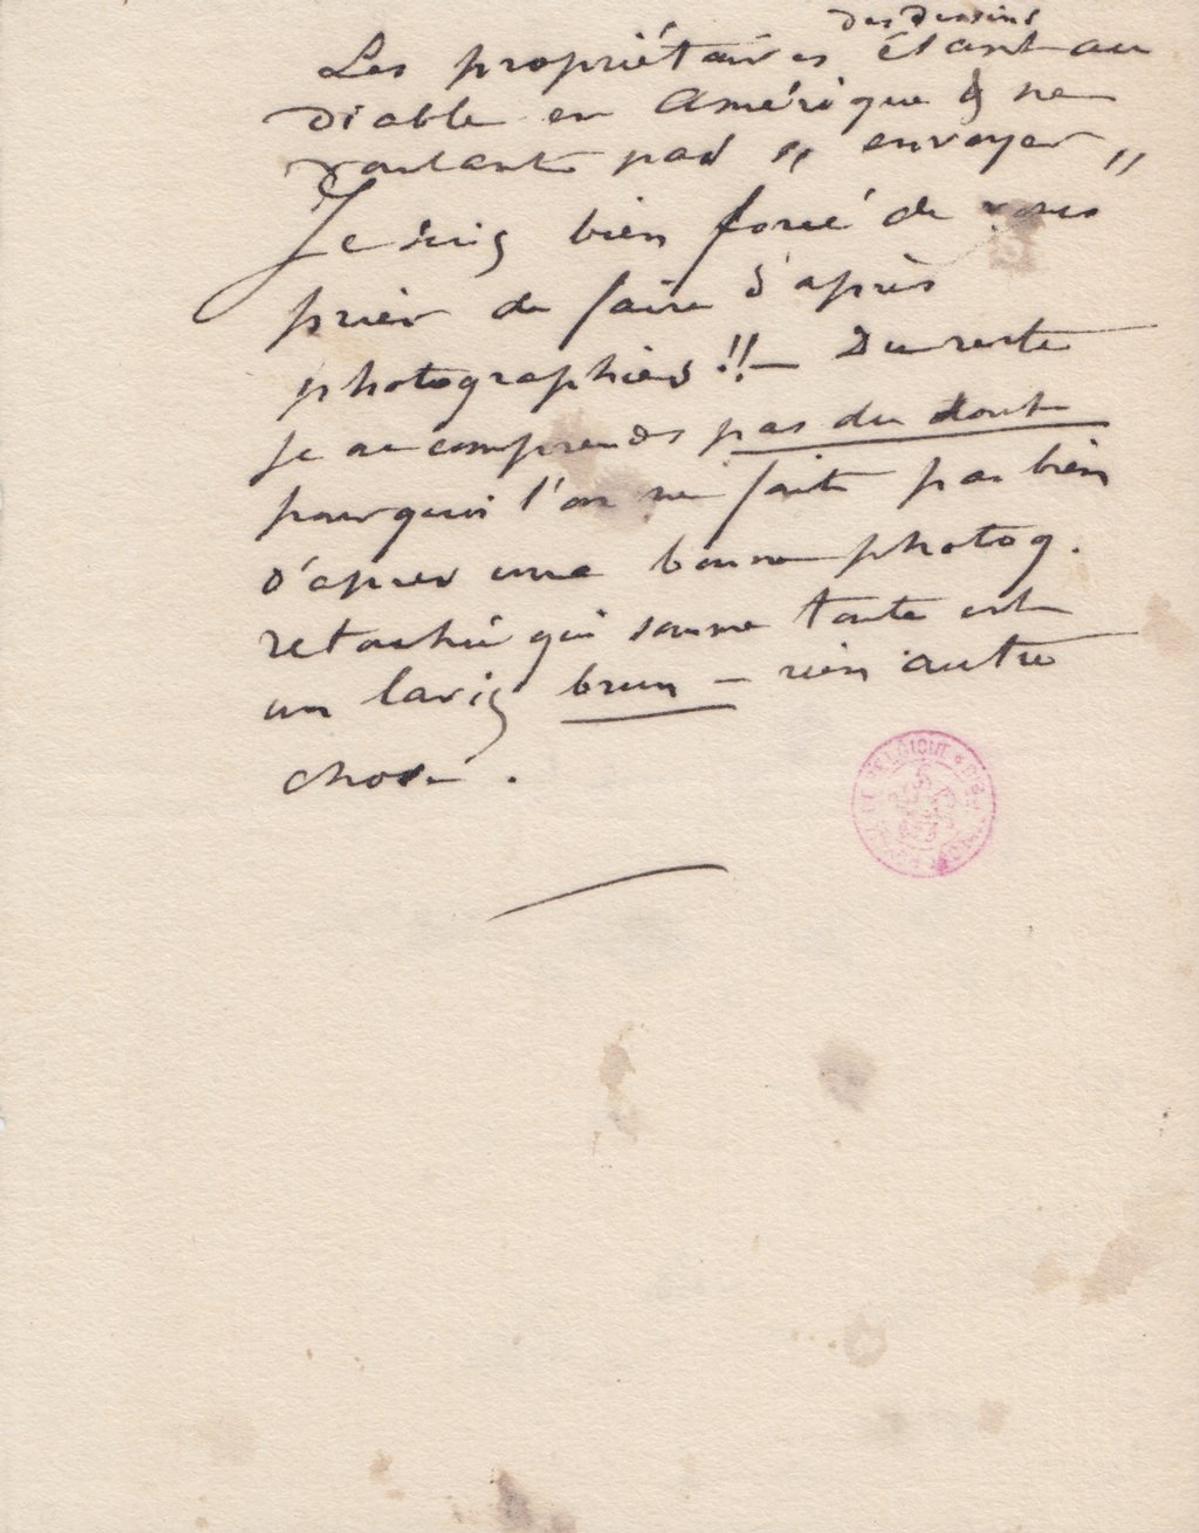 des dessins
Les propriétaires étant au
Diable en Amérique & ne
voulant pas " envoyer "
Je suis bien forcé de vous
prier de faire d'après
photographies !! — Du reste
je ne comprends pas du tout
pourquoi l'on ne fait pas bien
d'après une bonne photog.
retouchée qui somme toute est
un lavis brun — rien autre
chose .